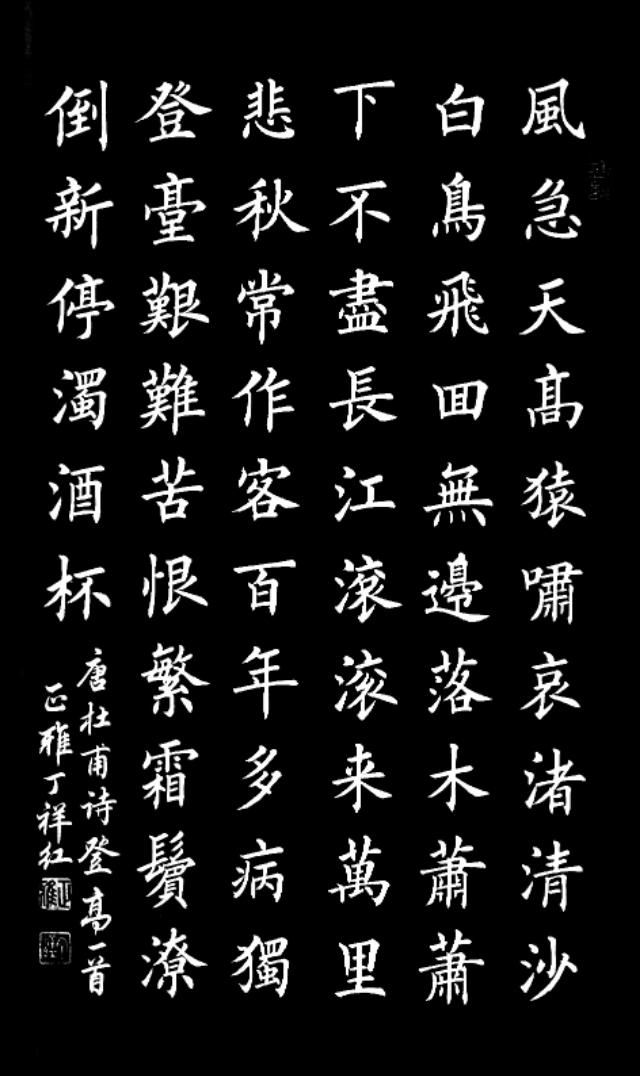 風急天髙猿嘯哀渚清沙
白鳥飛囬無邊落木蕭蕭
下不盡長江滚滚来萬里
悲秋常作客百年多病獨
登臺艱難苦恨繁霜鬢潦
倒新停濁酒杯
唐杜甫诗登高一首
正雅丁祥红